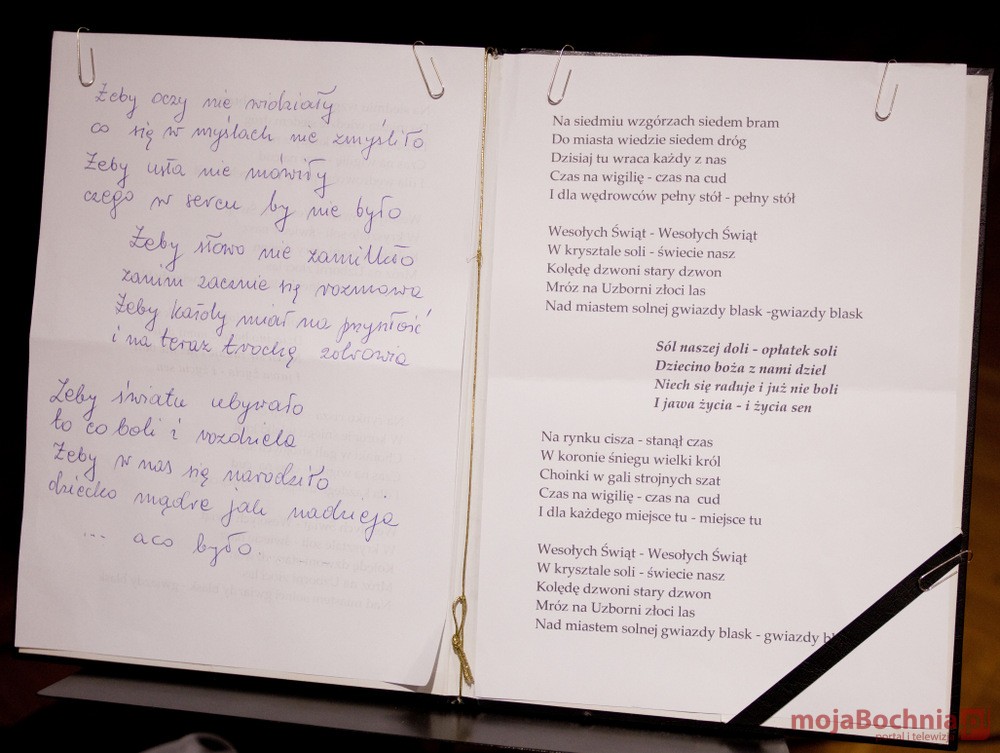 Żeby oczy nie widziały
co się w myślach nie zmyśliło
Żeby usta nie mówiły
czego w sercu by nie było
Żeby słowo nie zamilkło
zanim zacznie się rozmowa
Żeby każdy miał na przyszłość
i na teraz trochę zdrowia
Żeby światu ubywało
to co boli i rozdziela
Żeby w nas się narodziło
dziecko mądre jak nadzieja
... a co było.
Na siedmiu wzgórzach siedem bram
Do miasta wiedzie siedem dróg
Dzisiaj tu wraca każdy z nas
Czas na wigilię - czas na cud
I dla wędrowców pełny stół - pełny stół
Wesołych Świąt - Wesołych Świąt
W krysztale soli - świecie nasz
Kolędę dzwoni stary dzwon
Mróz na Uzborni złoci las
Nad miastem solnej gwiazdy blask -gwiazdy blask
Sól naszej doli - opłatek soli
Dziecino boża z nami dziel
Niech się raduje i już nie boli
I jawa życia - i życia sen
Na rynku cisza - stanął czas
W koronie śniegu wielki król
Choinki w gali strojnych szat
Czas na wigilię - czas na cud
I dla każdego miejsce tu - miejsce tu
Wesołych Świąt - Wesołych Świąt
W krysztale soli - świecie nasz
Kolędę dzwoni stary dzwon
Mróz na Uzborni złoci las
Nad miastem solnej gwiazdy blask - gwiazdy bl
mojaBochnia.pl
portal i telewizja